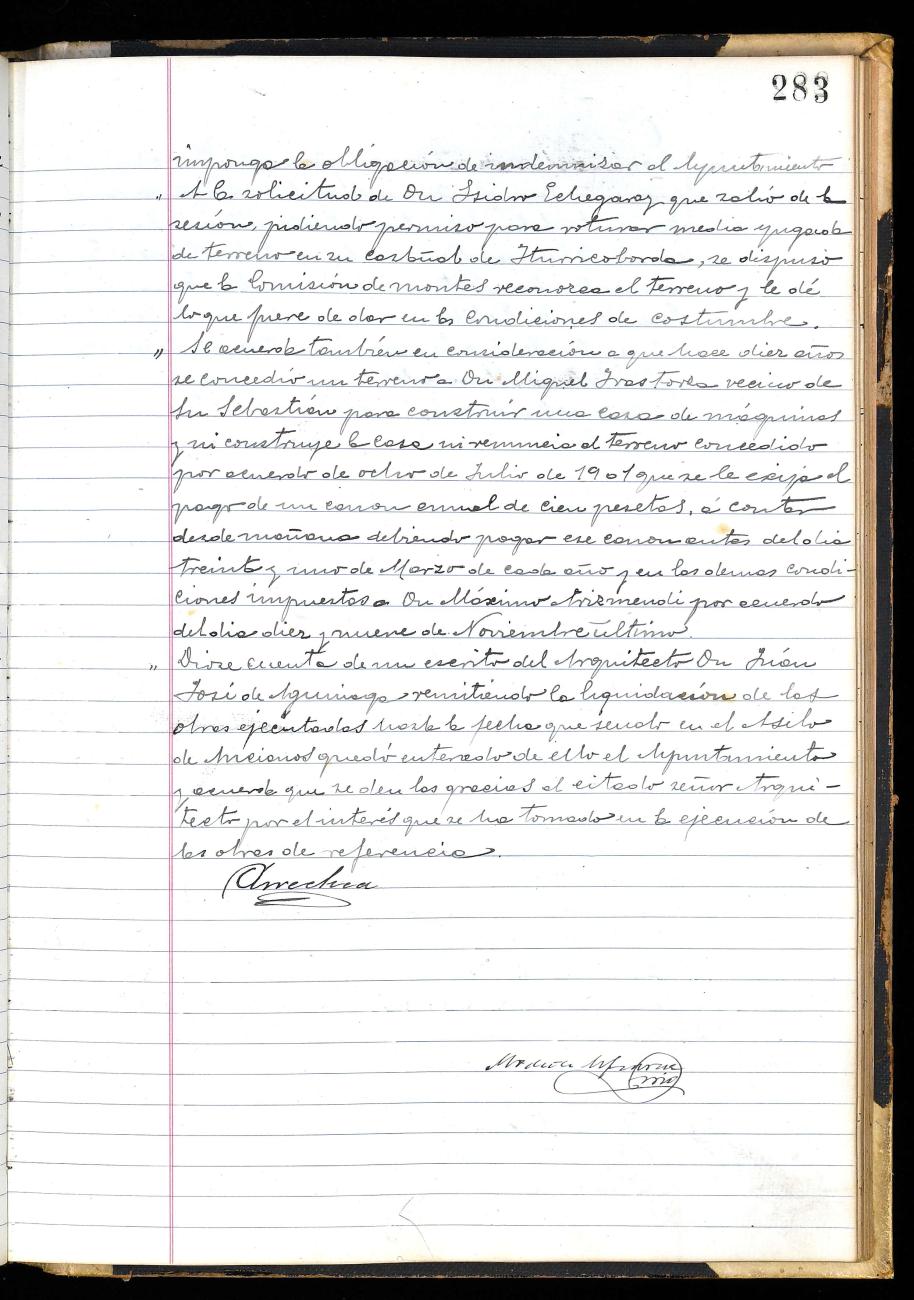 283
imponga la obligación de indemnizar al Ayuntamiento
„ A la solicitud de Dn Isidro Echegaray que salió de la
sesión, pidiendo permiso para roturar media yugada
de terreno en su castañal de Iturricoborda, se dispuso
que la Comisión de montes reconozca el terreno y le dé
lo que fuere de dar en las condiciones de costumbre.
„ Se acuerda también en consideración a que hace diez años
se concedió un terreno a Dn Miguel Irastorza vecino de
Sn Sebastián para construir una casa de máquinas
y ni construye la casa ni renuncia al terreno concedido
por acuerdo de ocho de Julio de 1901 que se le exija el
pago de un canon anual de cien pesetas, á contar
desde mañana debiendo pagar ese canon antes del dia
treinta y uno de Marzo de cada año y en las demas condi-
ciones impuestas a Dn Máximo Arizmendi por acuerdo
del dia diez y nueve de Noviembre último.
„ Diose cuenta de un escrito del Arquitecto Dn Juan
José de Aguinaga remitiendo la liquidación de las
obras ejecutadas hasta la fecha que sendo en el Asilo
de Ancianos quedó enterado de ello el Ayuntamiento
y acuerda que se den las gracias al citado señor Arqui-
tecto por el interés que se ha tomado en la ejecución de
las obras de referencia.
Arrechea